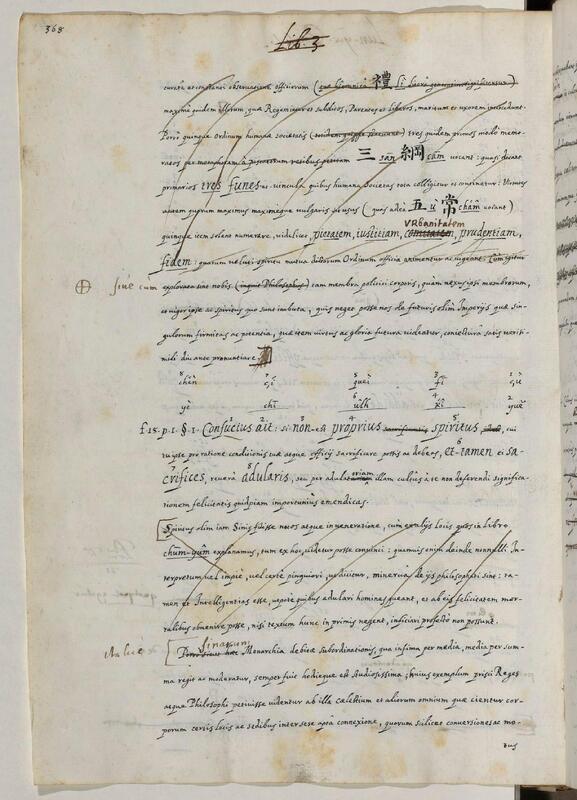 368
Lib. 3
禮
maxime quidem illorum, quae Regem inter et subditos, Parentes et liberos, maritum et uxorem intercedunt.
Porro quinque Ordinum humanae societatis tres quidem primos modo memo-
三 san 綱 cam vocant: quasi dicant
primarios tres funes ac vincula quibus humana societas tota colligitur et continetur: Virtutes
autem quarum maximus maximeque vulgaris usus (quas adeo 五 u 常 chám vocant)
Vrbanitatem
quinque item solent numerare, videlicet, pietatem, iustitiam, comitatem, prudentiam,
fidem: quarum veluti spiritu mutua dictorum Ordinum officia animentur ac vigeant. Cum igitur
sive cum
explorata sint nobis (inquit Philosophus) tam membra politici corporis, quam nexus ipsi membrorum,
et vigor ipse ac spiritus quo sunt imbuta, quis neget posse nos de futuris olim Imperijs quae sin-
gulorum firmitas ac potentia, quae item virtus ac gloria futura videatur, coniectura satis verisi-
mili ducante pronuntiare.
chên
quèi
fi
yè
chì
f. 15. p. 1. §. 1. Confucius ait: si non est proprius spiritus, cui
tu ipse pro ratione conditionis tuae atque officij sacrificare possis ac debeas, et tamen ei sa-
crifices, revera adularis, seu per adulatoriam illam cultus à te non deferendi significa-
tionem felicitatis quidpiam importunius emendicas.
Spiritus olim iam Sinis fuisse notos atque in veneratione, cum ex alijs locis quos in Libro
chum-yûm explanamus, tum ex hoc, videtur posse convinci: quamvis enim deinde nonnulli In-
terpretum vel impie, vel certe pinguiori, ut dicitur, minerva de ijs philosophati sint: ta-
men et Intelligentias esse, utpote quibus adulari homines queant, et ab eis felicitatem mor-
talibus obvenire posse, nisi textum hunc in primis negent, inficiari profecto non possunt.
Sinarum
Porro Monarchia debitae subordinationis, qua infima per media, media per sum-
ma regit ac moderatur, semper fuit hodieque est studiosissima; huius exemplum prisci Reges
atque Philosophi petivisse videntur ab illa caelestium et aliorum omnium quae cientur cor-
porum certis locis ac sedibus inter sese apta connexione, quorum scilicet conversiones ac mo-
tus